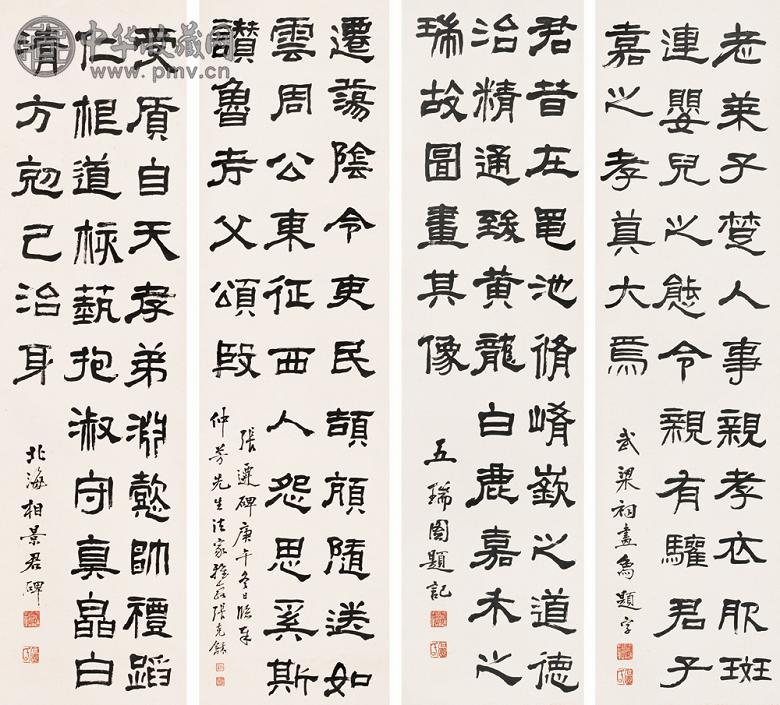 老萊子楚人事親孝衣服斑
連嬰兒之態令親有驩君子
嘉之孝莫大焉
武梁祠畫象題字
君昔在黽池脩崤嶔之道德
治精通致黃龍白鹿嘉禾之
瑞故圖畫其像
五瑞圖題記
遷蕩陰令吏民頡頏隨送如
雲周公東征西人怨思奚斯
讚魯考父頌殷
張遷碑庚午冬日臨奉
仲芳先生法家雅教張克龢
受質自天孝弟淵懿帥禮蹈
仁根道核藝抱淑守真皛白
清方剋己治身
北海相景君碑
中华收藏网
www.pmv.cn